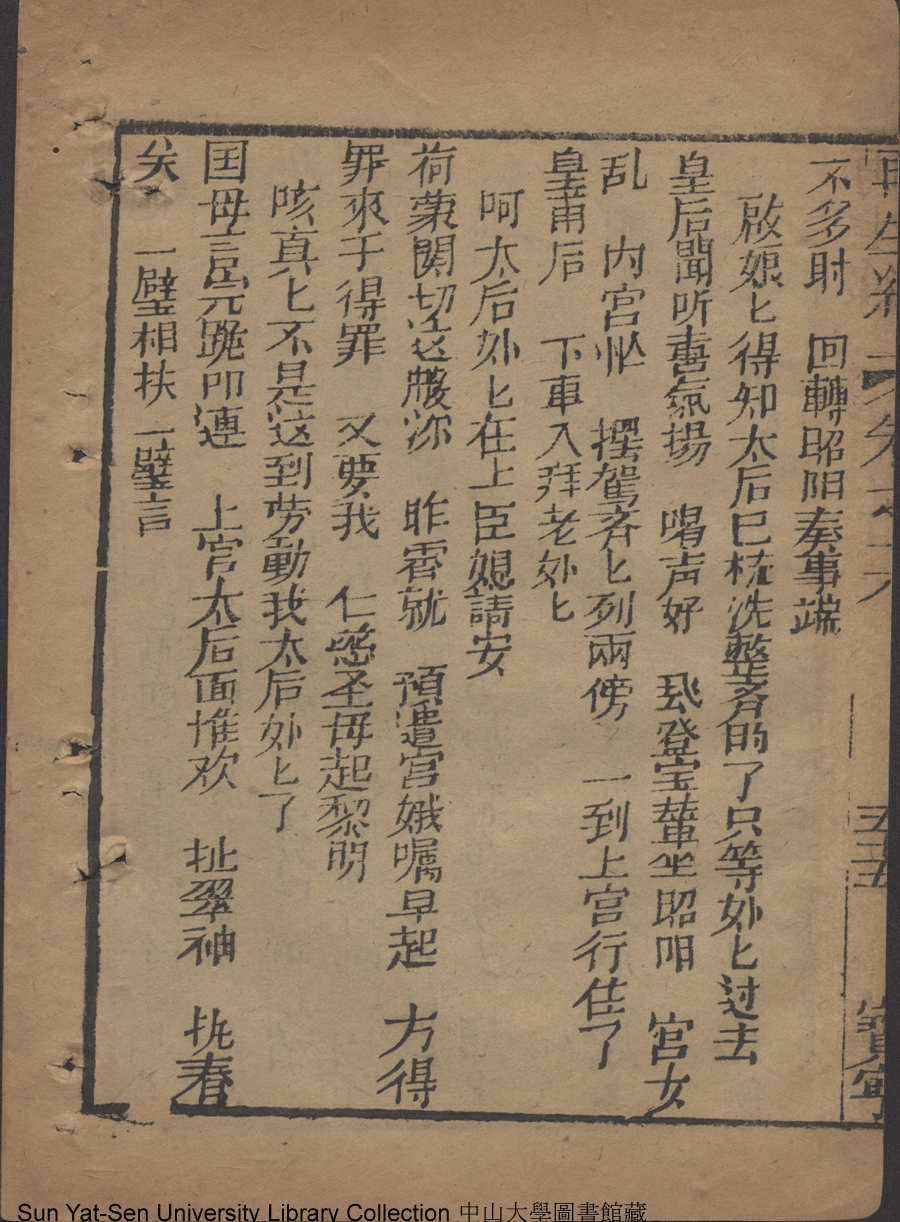 再生 卷之六
五十五
寳寧
不多时 回轉昭阳奏事端
啟娘匕得知太后已梳洗整斉的了只等妳匕过去
皇后聞听喜氣揚 喝声好 我登宝輦坐昭阳 宮女
乱 内宮忙 擺駕斉匕列兩傍 一到上宮行住了
皇甫后 下車入拜老妳匕
呵太后妳匕在上臣媳請安
荷蒙関切这般深 昨霄就 預遣宮娥囑早起 方得
罪來于得罪 又要我 仁慈圣母起黎明
咳真匕不是这到劳動我太后妳匕了
囯母言完跪叩連 上官太后面惟欢 扯翠袖 扰春
矣 一壁相扶一壁言
Sun Yat-Sen University Library Collection 中山大學圖書館藏